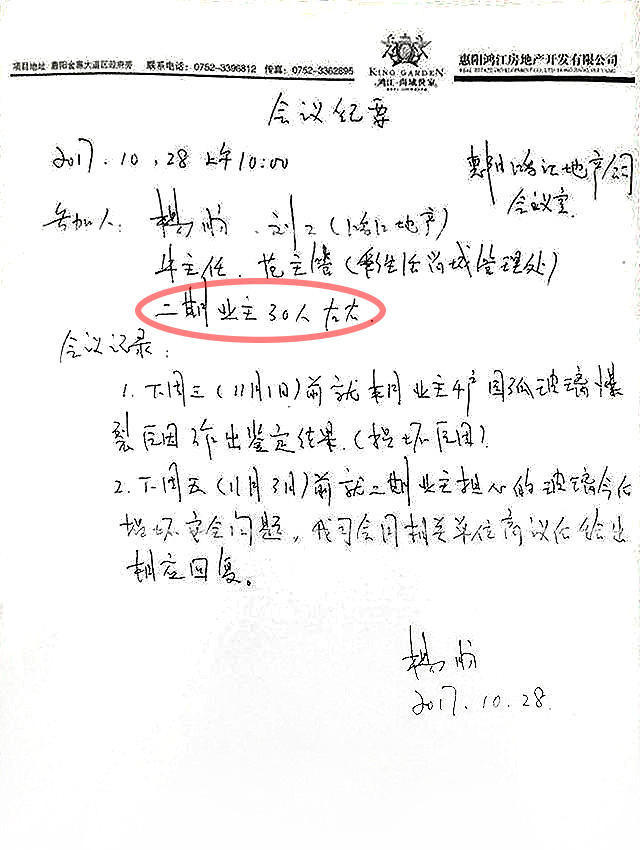 项目地址:惠阳金惠大道区政府旁 联系电话:0752-3396812 传真:0752-3362895
KING GARDEN
鸿江·尚城世家
惠阳鸿江房地产开发有限公司
会议纪要
2017.10.28 上午10:00
惠阳鸿江地产公司
会议室
参加人: 杨 、刘工(鸿江地产)
主任、范主管(彩生活尚城管理处)
二期业主30人左右
会议记录:
1.下周三(11月1日)前就本月业主4户圆弧玻璃爆
裂原因作出鉴定结果。(损坏原因)
2.下周五(11月3日)前就二期业主担心的玻璃今后
损坏安全问题,我司会同相关单位商议后给出
相应回复。
杨
2017.10.28.